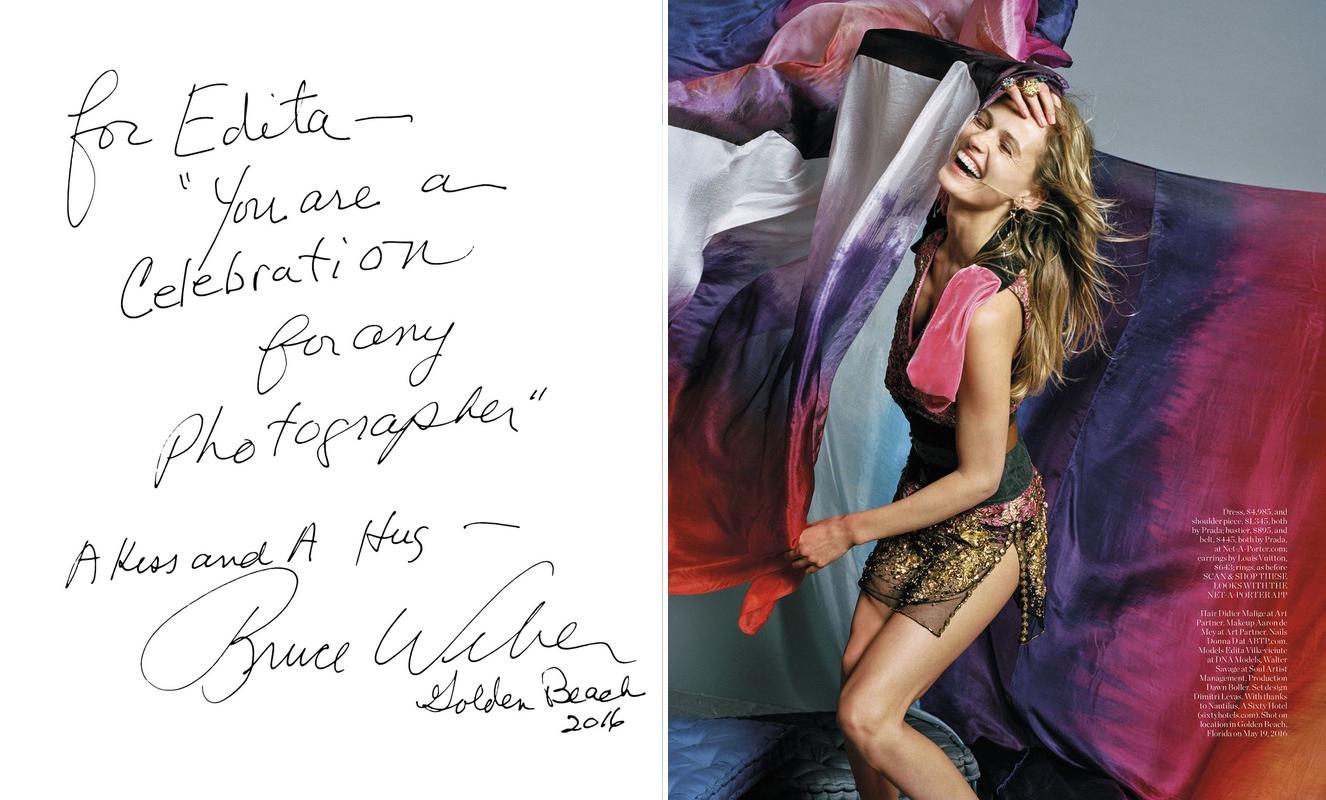 for Edita —
"You are a
Celebration
for any
Photographer"
A Kiss and A Hug —
Bruce Weber
Golden Beach
2016
Dress, $4,985, and
shoulder piece, $1,345, both
by Prada; bustier, $895, and
belt, $445, both by Prada,
at Net-A-Porter.com;
earrings by Louis Vuitton,
$643; rings, as before
SCAN & SHOP THESE
LOOKS WITH THE
NET-A-PORTER APP
Hair Didier Malige at Art
Partner. Makeup Aaron de
Mey at Art Partner. Nails
Donna D at ABTP.com.
Models Edita Vilkeviciute
at DNA Models, Walter
Savage at Soul Artist
Management. Production
Dawn Boller. Set design
Dimitri Levas. With thanks
to Nautilus, A Sixty Hotel
(sixtyhotels.com). Shot on
location in Golden Beach,
Florida on May 19, 2016